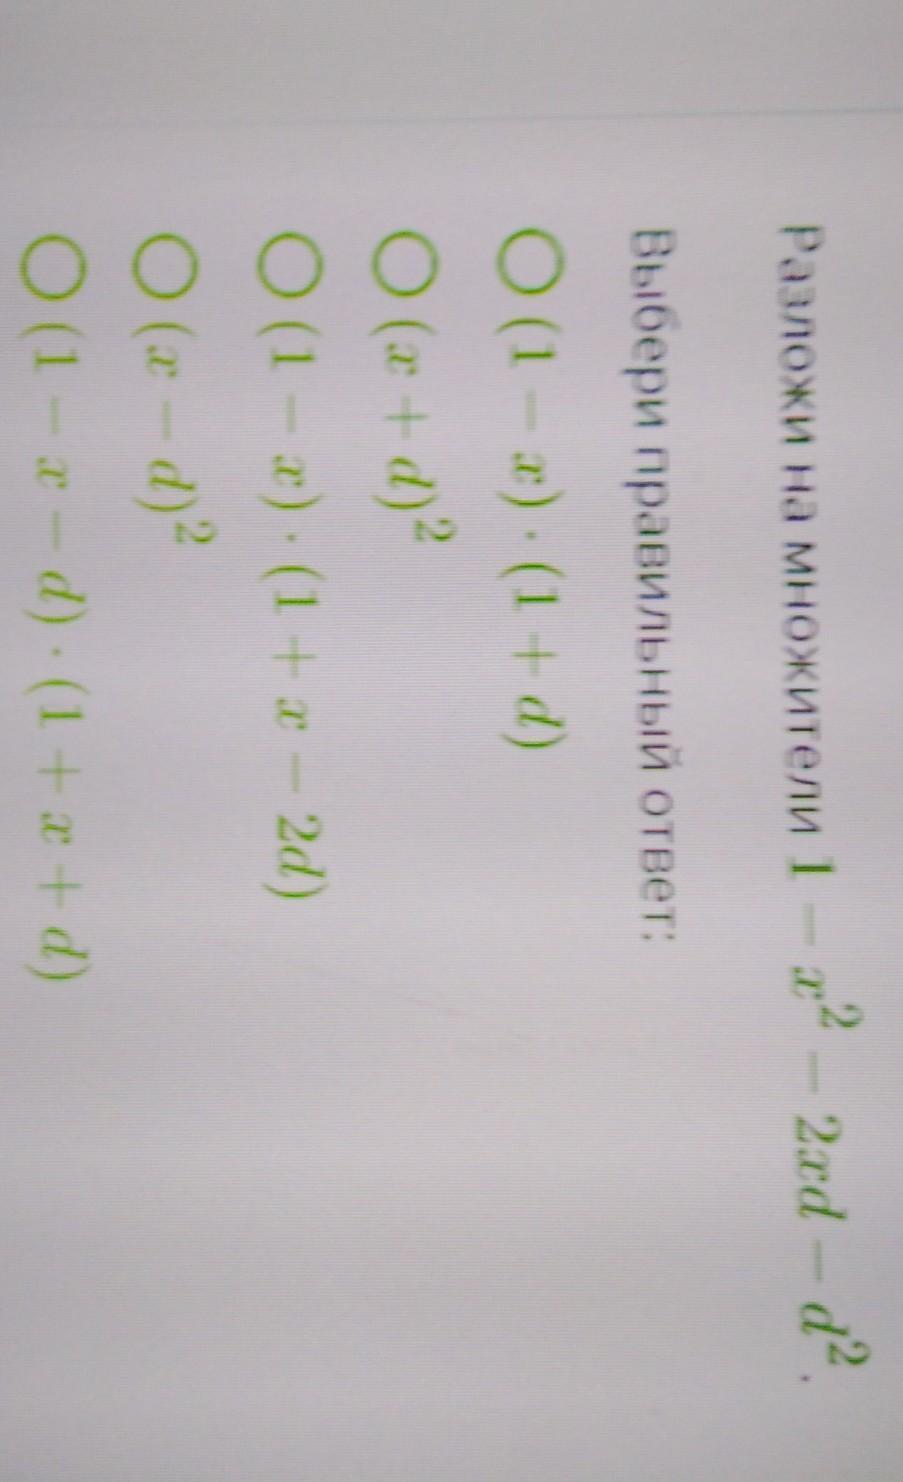 Разложи на множители 1 − x² − 2xd − d².
Выбери правильный ответ:
(1 − x) · (1 + d)
(x + d)²
(1 − x) · (1 + x − 2d)
(x − d)²
(1 − x − d) · (1 + x + d)